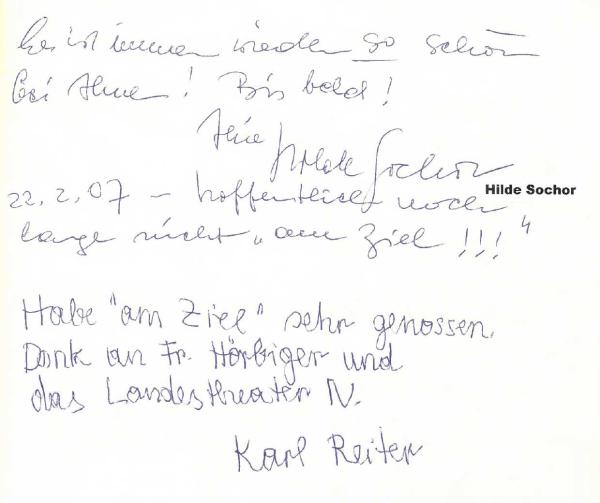 Es ist immer wieder so schön
bei Ihnen! Bis bald!
Ihre Hilde Sochor
Hilde Sochor
22.2.07 – hoffentlich noch
lange nicht „am Ziel!!!“
Habe "am Ziel" sehr genossen.
Dank an Fr. Hörbiger und
das Landestheater N.
Karl Reiter